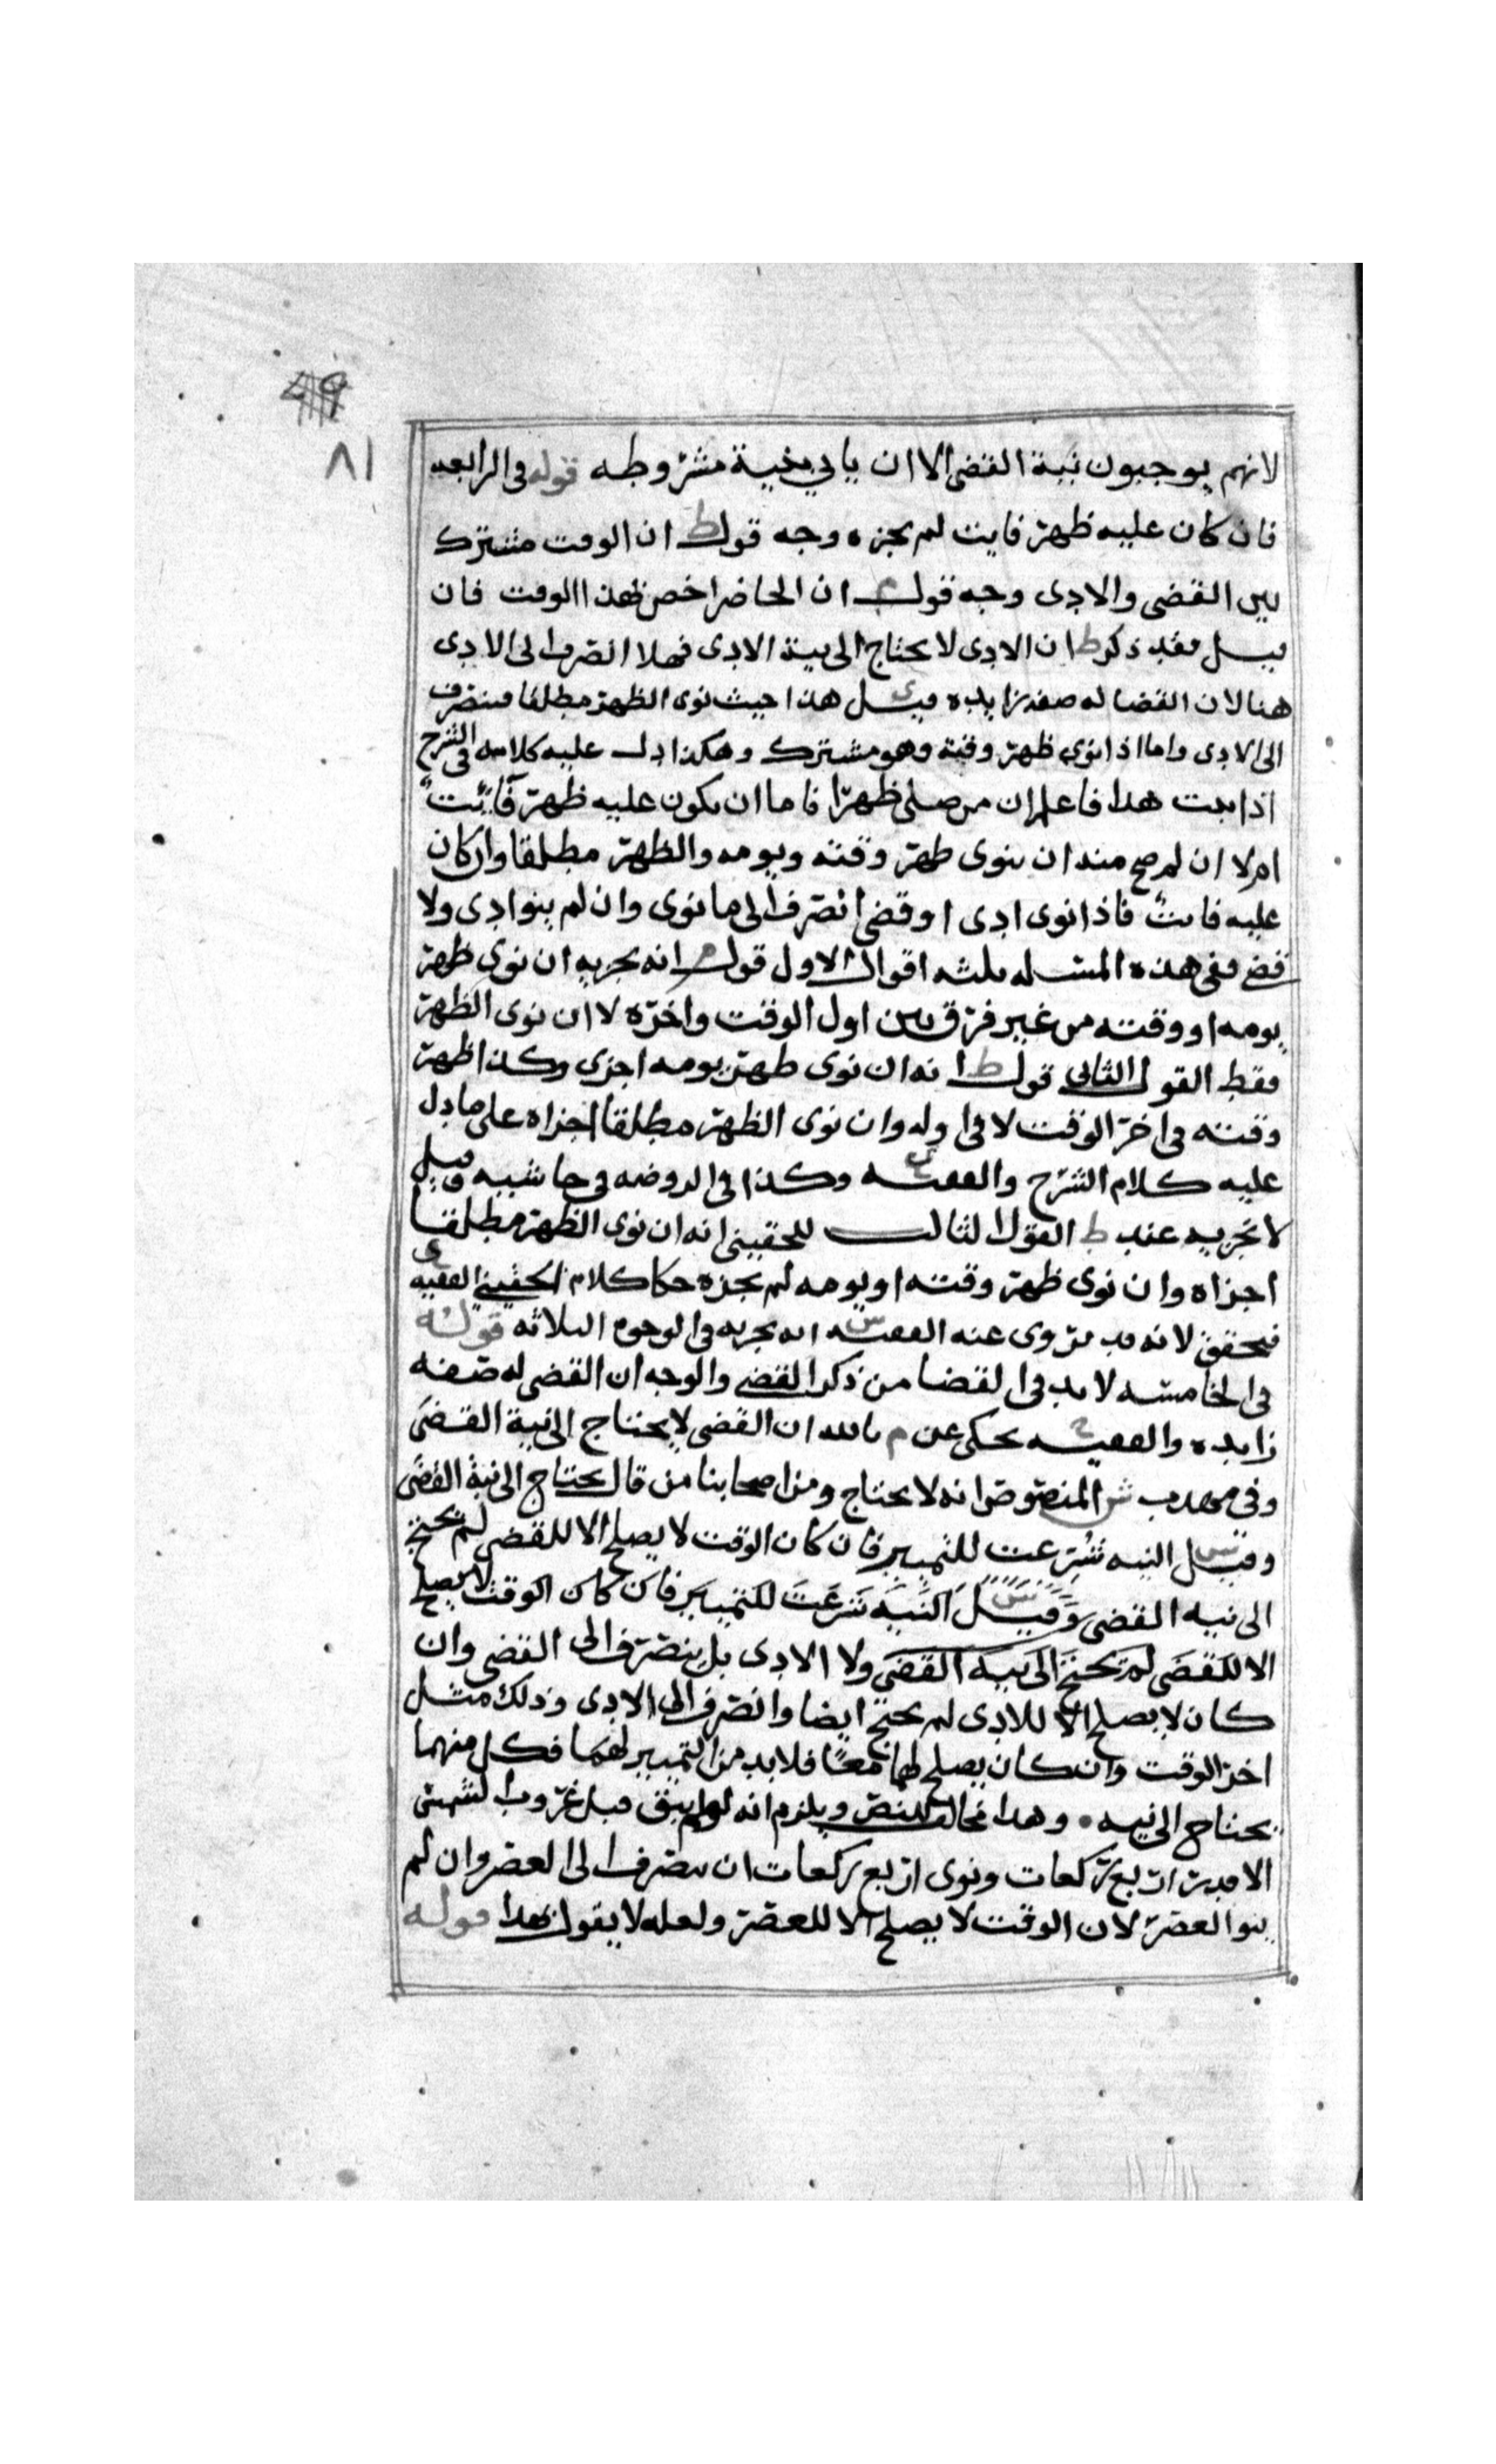 ٤٩
٨١
لانهم يوجبون نية القضى الا ان ياتي بنية مشروطه قوله في الرابعه
فان كان عليه ظهر فايت لم يجزه وجه قول ط ان الوقت مشترك
بين القضى والادى وجه قول م ان الحاضر اخص بهذا الوقت فان
قيل فقد ذكر ط ان الادى لا يحتاج الى نية الادى فهلا انصرف الى الادى
هنا لان القضا له صفه زايده قيل هذا حيث نوى الظهر مطلقا فينصرف
الى الادى واما اذا نوى ظهر وقته وهو مشترك وهكذا دل عليه كلامه في الشرح
اذا ثبت هذا فاعلم ان من صلى ظهرا فاما ان يكون عليه ظهر فايت
ام لا ان لم صح منه ان ينوى ظهر وقته ويومه والظهر مطلقا وان كان
عليه فايت فاذا نوى ادى او قضى انصرف الى ما نوى وان لم ينو ادى ولا
قضى ففى هذه المسئله ثلثه اقوال الاول قول م انه يجزيه ان نوى ظهر
يومه او وقته من غير فرق بين اول الوقت واخره لا ان نوى الظهر
فقط القول الثانى قول ط انه ان نوى ظهر يومه اجزى وكذا ظهر
وقته في اخر الوقت لا في اوله وان نوى الظهر مطلقا اجزاه على ما دل
عليه كلام الشرح والفقيه وكذا في الروضه في حاشيه وقيل
لا يجزيه عند ط القول الثالث للحقينى انه ان نوى الظهر مطلقا
اجزاه وان نوى ظهر وقته او يومه لم يجزه حكا كلام الحقيني الفقيه ى
فيحقق لانه قد روى عنه الفقيه س انه يجزيه في الوجوه الثلاثه قوله
في الخامسه لا بد في القضا من ذكر القضى والوجه ان القضى له صفه
زايده والفقيه ح يحكى عن م بالله ان القضى لا يحتاج الى نية القضى
وفي مهذب ش المنصوص انه لا يحتاج ومن اصحابنا من قال يحتاج الى نية القضى
وقيل س النيه شرعت للتمييز فان كان الوقت لا يصلح الا للقضى لم يحتج
الى نيه القضى وقيل س النيه شرعت للتمييز فان كان الوقت لا يصلح
الا للقضى لم يحتج الى نيه القضى ولا الادى بل ينصرف الى القضى وان
كان لا يصلح الا للادى لم يحتج ايضا وانصرف الى الادى وذلك مثل
اخر الوقت وان كان يصلح لهما معا فلا بد من التمييز لهما فكل منهما
يحتاج الى نيه • وهذا مخالف للنص ويلزم انه لو لم يبق قبل غروب الشمس
الا قدر اربع ركعات ونوى اربع ركعات ان ينصرف الى العصر وان لم
ينو العصر لان الوقت لا يصلح الا للعصر ولعله لا يقول بهذا قوله